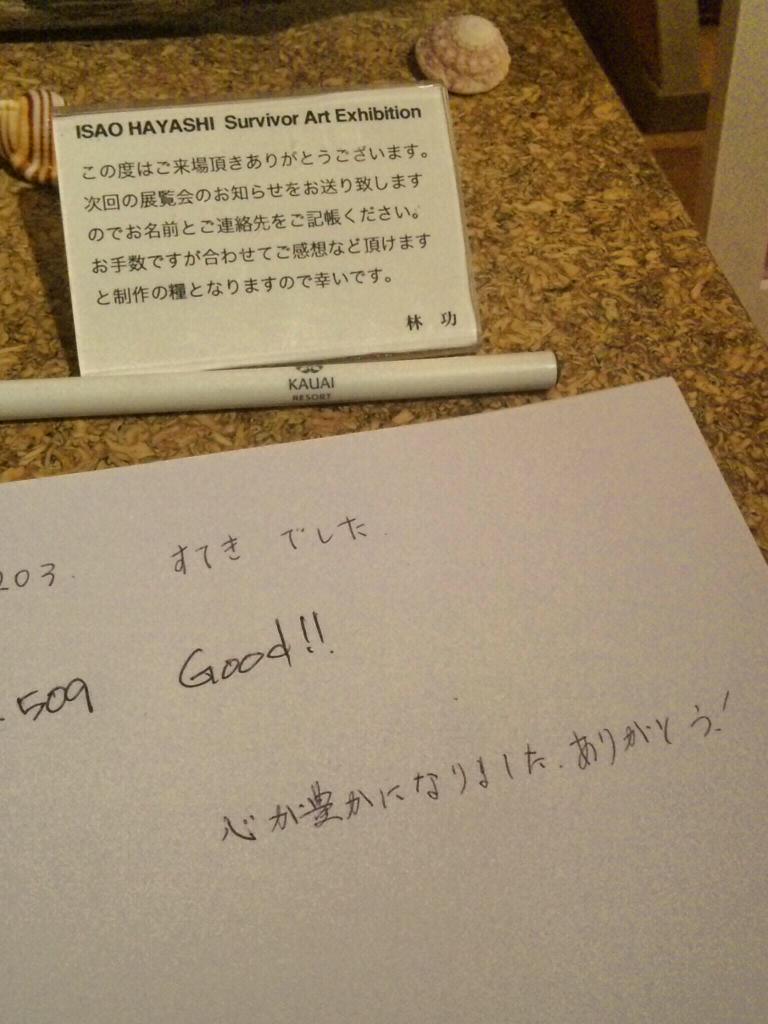 ISAO HAYASHI Survivor Art Exhibition
この度はご来場頂きありがとうございます。
次回の展覧会のお知らせをお送り致します
のでお名前とご連絡先をご記帳ください。
お手数ですが合わせてご感想など頂けます
と制作の糧となりますので幸いです。
林 功
KAUAI
RESORT
203. すてき でした
509 Good!!
心が豊かになりました.ありがとう!